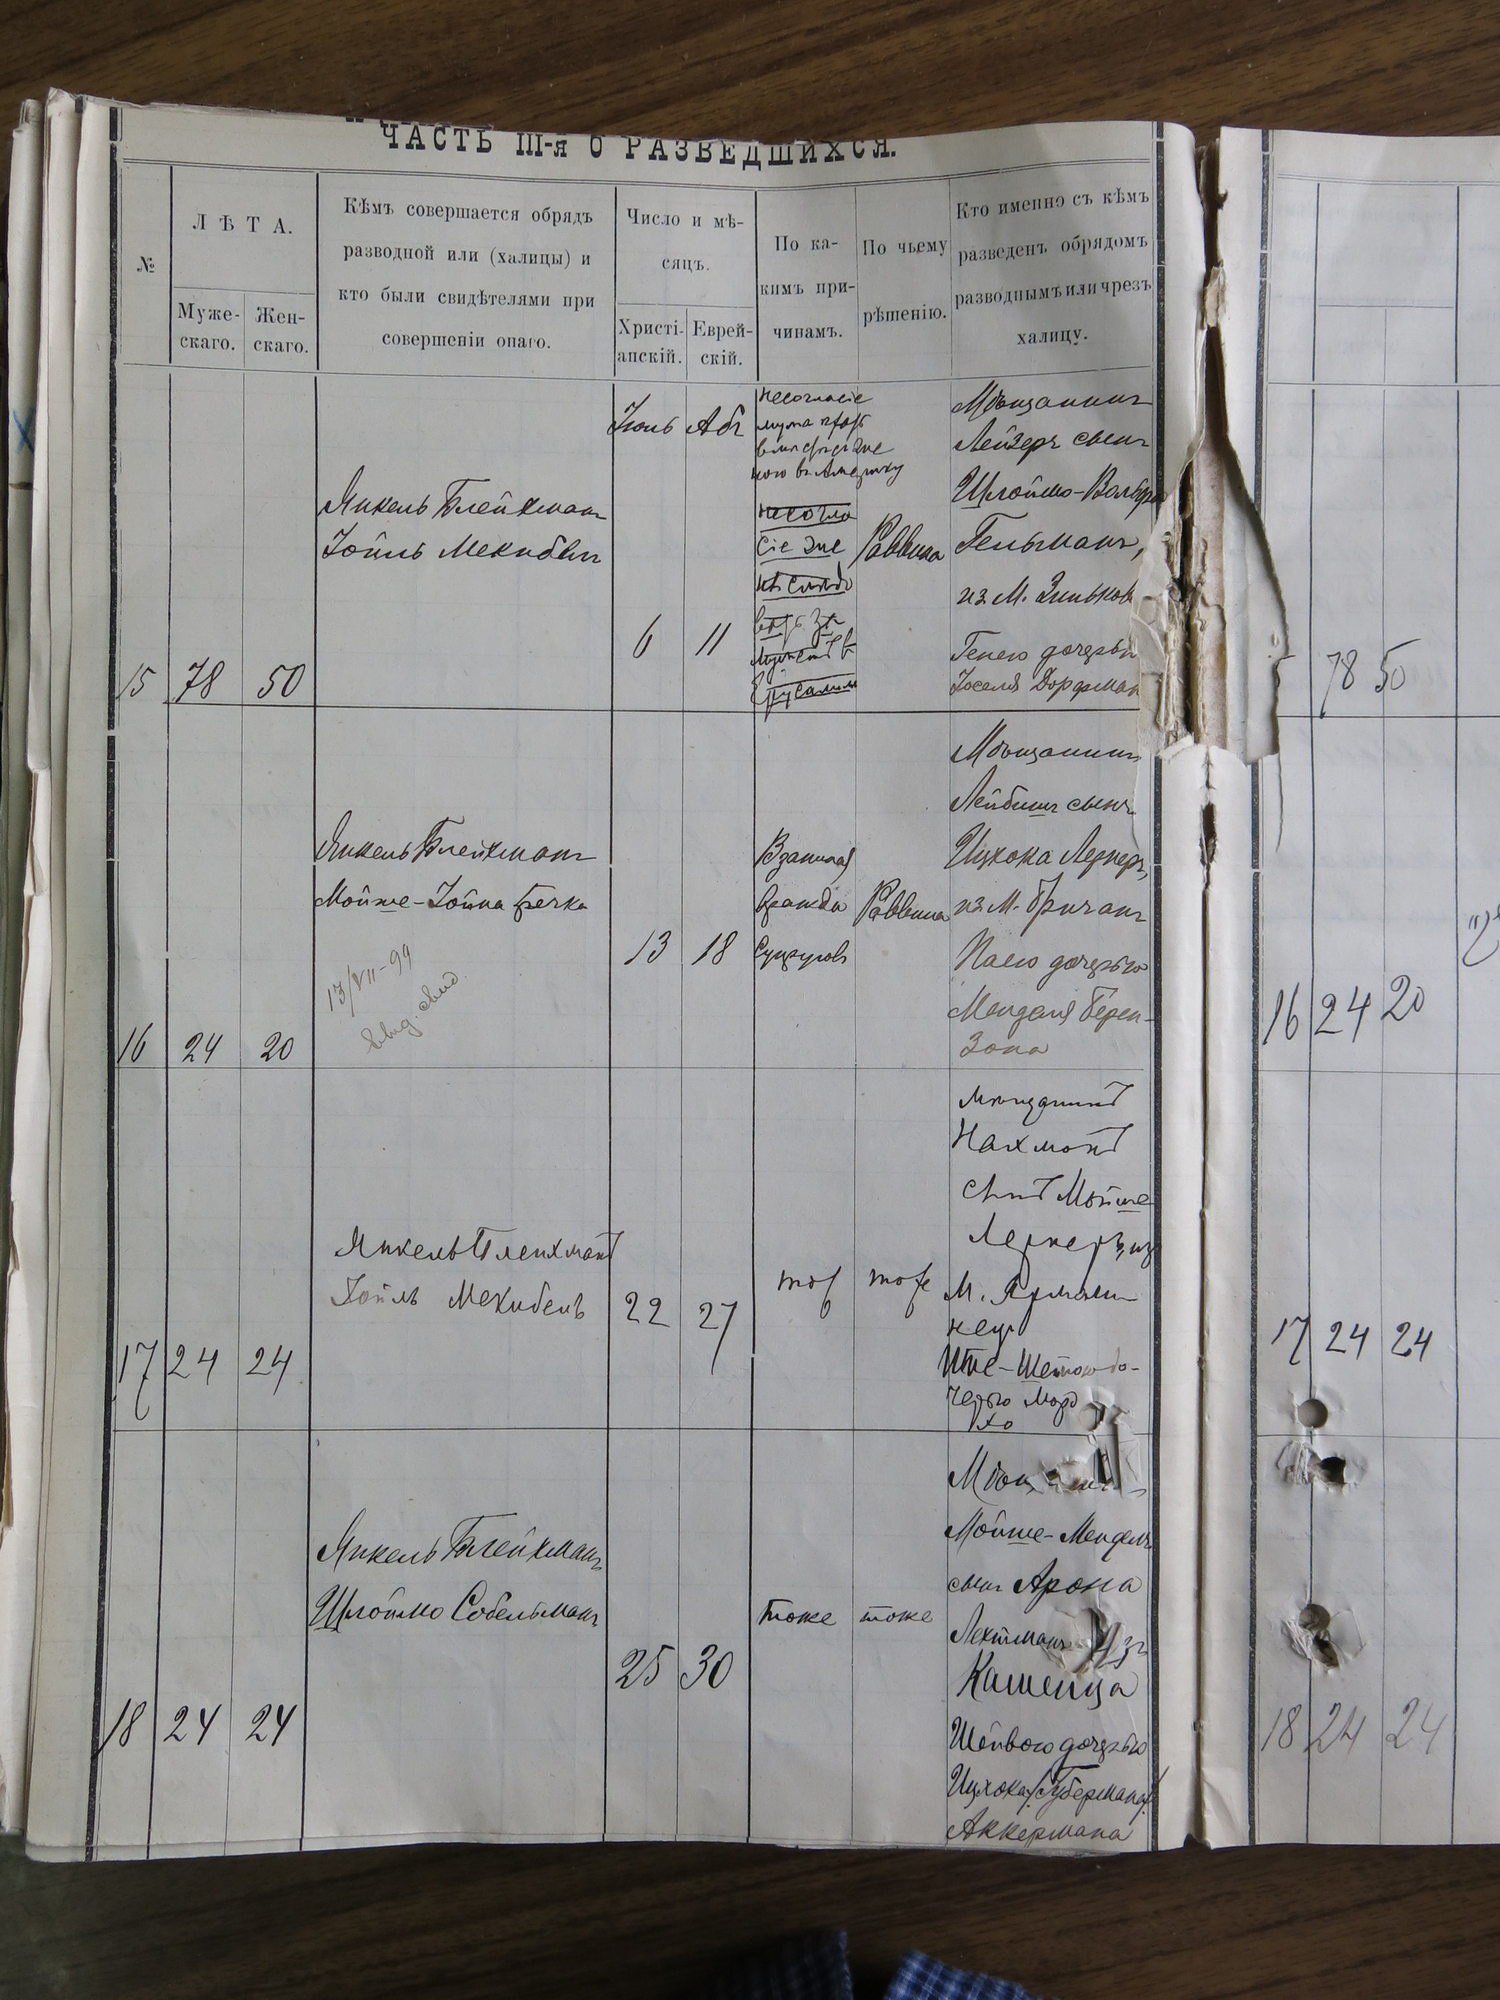 ЧАСТЬ III-я О РАЗВЕДШИХСЯ.
№
ЛѢТА.
Муже-
скаго.
Жен-
скаго.
Кѣмъ совершается обрядъ
разводной или (халицы) и
кто были свидѣтелями при
совершеніи онаго.
Число и мѣ-
сяцъ.
Христі-
анскій.
Еврей-
скій.
По ка-
кимъ при-
чинамъ.
По чьему
рѣшенію.
Кто именно съ кѣмъ
разведенъ обрядомъ
разводнымъ или чрезъ
халицу.
15
78
50
Янкель Блейхманъ
Іойль Мекибелъ
Іюль
6
Абъ
11
несогласіе
въ Америку
несогла
сіе
Раввина
Мѣщанинъ
Лейзеръ сынъ
Шлоймо-Вольфа
Гельманъ,
из М. Зиньков
Генею дочерью
Іоселя Дорфман
16
24
20
Янкель Блейхманъ
Мойше-Іойна Бречка
13/VII-99
выд. свид
13
18
Взаимная
вражда
супруговъ
Раввина
Мѣщанинъ
Лейбишъ сынъ
Ицхока Лернеръ,
из М. Бричанъ
Песею дочерью
Менделя Берен-
зона
17
24
24
Янкель Блейхманъ
Іойль Мекибель
22
27
тоже
тоже
мѣщанинъ
Нахманъ
сынъ Мойше
Лернеръ, из
М. Ярмоли-
нец
Ите-Шейною до-
черью Мордхо
18
24
24
Янкель Блейхманъ
Шлоймо Собельманъ
25
30
тоже
тоже
Мѣщанинъ
Мойше-Мендель
сынъ Арона
Лехтманъ Изъ
Каменца
Шейвою дочерью
Ицхока (Губермана)
Аккермана
78 50
16 24 20
17 24 24
18 24 24